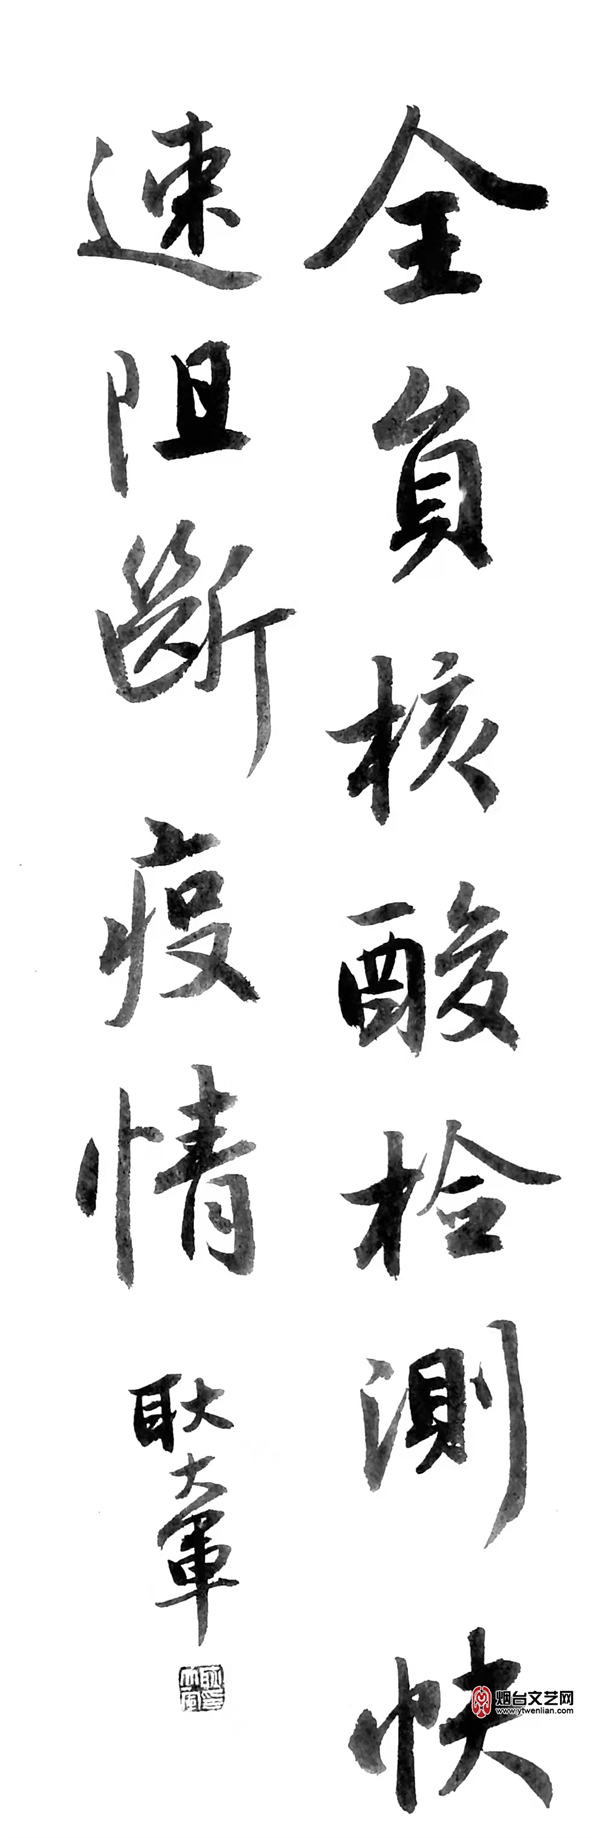 全員核酸检測快
速阻斷疫情
耿大軍
烟台文艺网
www.ytwenlian.com